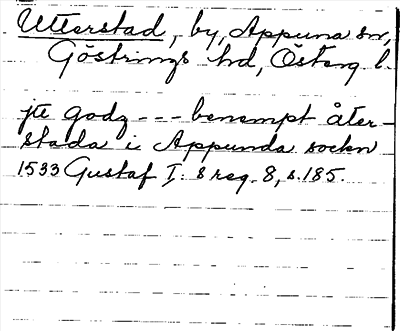 Utterstad, by, Appuna sn,
Göstrings hd, Österg. l.
jte godz --- benempt åter-
stada i Appunda sockn
1533 Gustaf I:s reg. 8, s. 185.